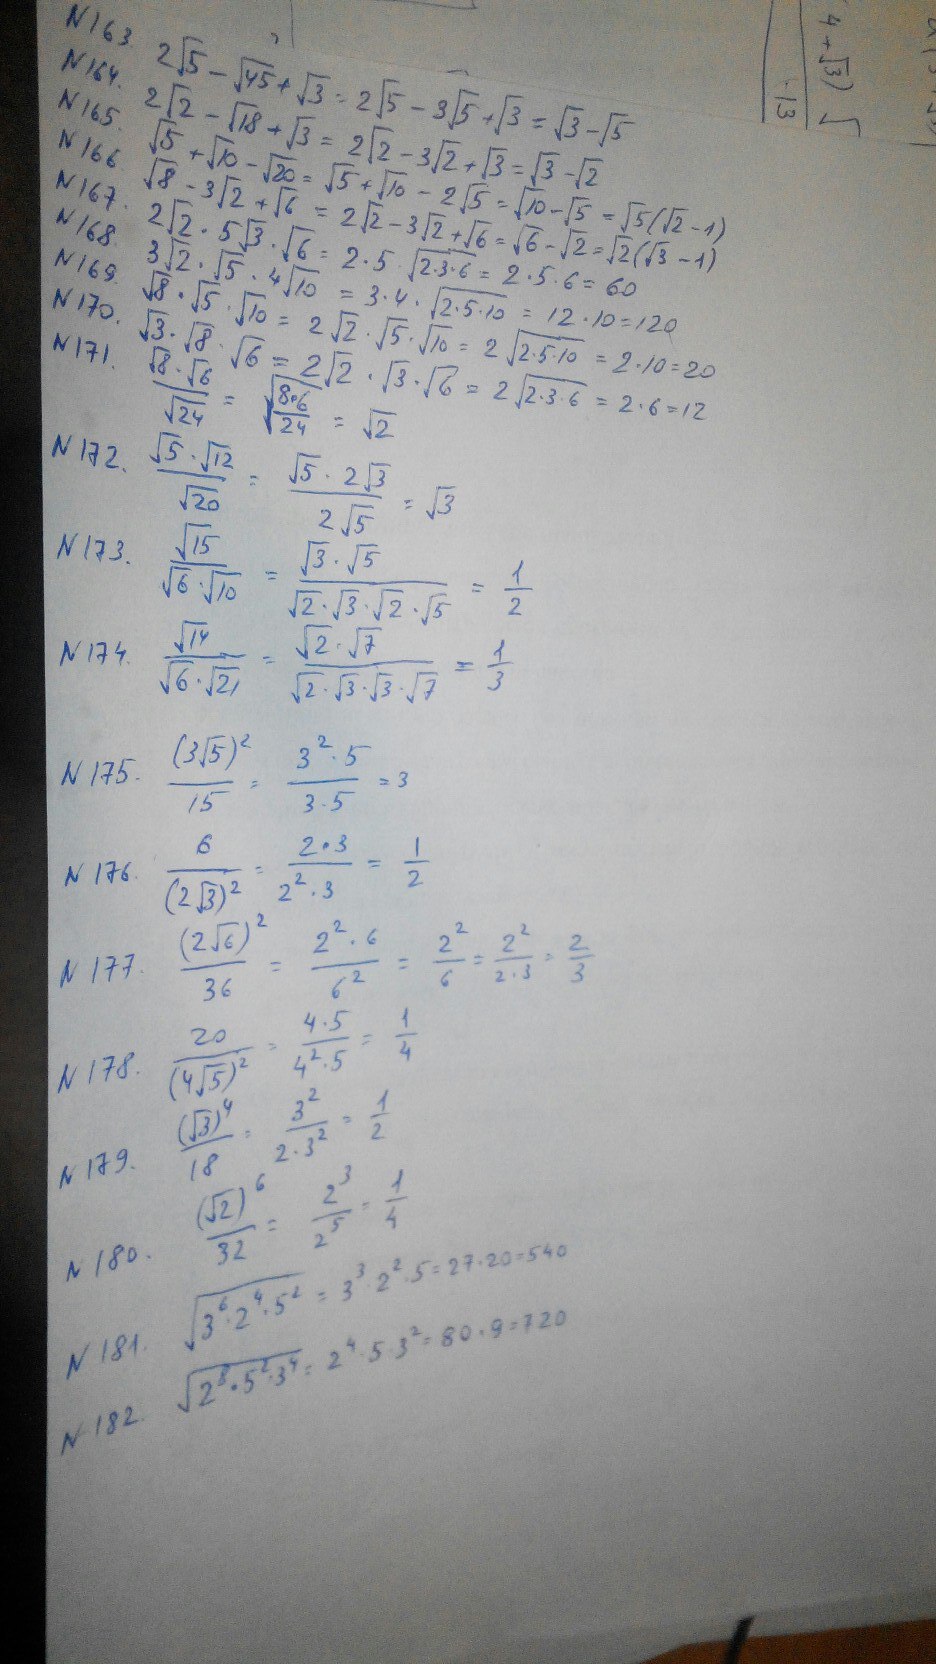 N163. 2√5 - √45 + √3 = 2√5 - 3√5 + √3 = √3 - √5
N164. 2√2 - √18 + √3 = 2√2 - 3√2 + √3 = √3 - √2
N165. √5 + √10 - √20 = √5 + √10 - 2√5 = √10 - √5 = √5(√2 - 1)
N166. √8 - 3√2 + √6 = 2√2 - 3√2 + √6 = √6 - √2 = √2(√3 - 1)
N167. 2√2 · 5√3 · √6 = 2·5·√(2·3·6) = 2·5·6 = 60
N168. 3√2 · √5 · 4√10 = 3·4·√(2·5·10) = 12·10 = 120
N169. √8 · √5 · √10 = 2√2 · √5 · √10 = 2√(2·5·10) = 2·10 = 20
N170. √3 · √8 · √6 = 2√2 · √3 · √6 = 2√(2·3·6) = 2·6 = 12
N171. (√8 · √6)/√24 = √(8·6/24) = √2
N172. (√5 · √12)/√20 = (√5 · 2√3)/(2√5) = √3
N173. √15/(√6 · √10) = (√3 · √5)/(√2 · √3 · √2 · √5) = 1/2
N174. √14/(√6 · √21) = (√2 · √7)/(√2 · √3 · √3 · √7) = 1/3
N175. (3√5)²/15 = (3² · 5)/(3·5) = 3
N176. 6/(2√3)² = (2·3)/(2²·3) = 1/2
N177. (2√6)²/36 = (2²·6)/6² = 2²/6 = 2²/(2·3) = 2/3
N178. 20/(4√5)² = (4·5)/(4²·5) = 1/4
N179. (√3)⁴/18 = 3²/(2·3²) = 1/2
N180. (√2)⁶/32 = 2³/2⁵ = 1/4
N181. √(3⁶·2⁴·5²) = 3³·2²·5 = 27·20 = 540
N182. √(2⁸·5²·3⁴) = 2⁴·5·3² = 80·9 = 720
4+√3)